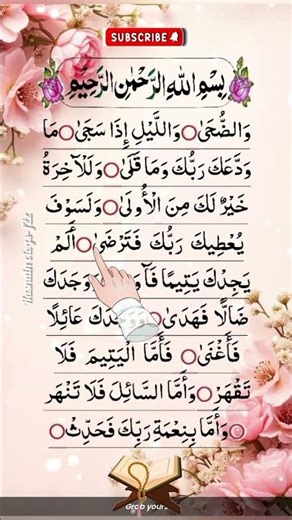 SUBSCRIBE
بِسْمِ اللّٰهِ الرَّحْمٰنِ الرَّحِيْمِ
وَالضُّحَىٰ ○ وَاللَّيْلِ إِذَا سَجَىٰ ○ مَا
وَدَّعَكَ رَبُّكَ وَمَا قَلَىٰ ○ وَلَلْآخِرَةُ
خَيْرٌ لَكَ مِنَ الْأُولَىٰ ○ وَلَسَوْفَ
يُعْطِيكَ رَبُّكَ فَتَرْضَىٰ ○ أَلَمْ
يَجِدْكَ يَتِيمًا فَآ وَجَدَكَ
ضَالًّا فَهَدَىٰ ○ وَوَجَدَكَ عَائِلًا
فَأَغْنَىٰ ○ فَأَمَّا الْيَتِيمَ فَلَا
تَقْهَرْ ○ وَأَمَّا السَّائِلَ فَلَا تَنْهَر
○ وَأَمَّا بِنِعْمَةِ رَبِّكَ فَحَدِّثْ ○